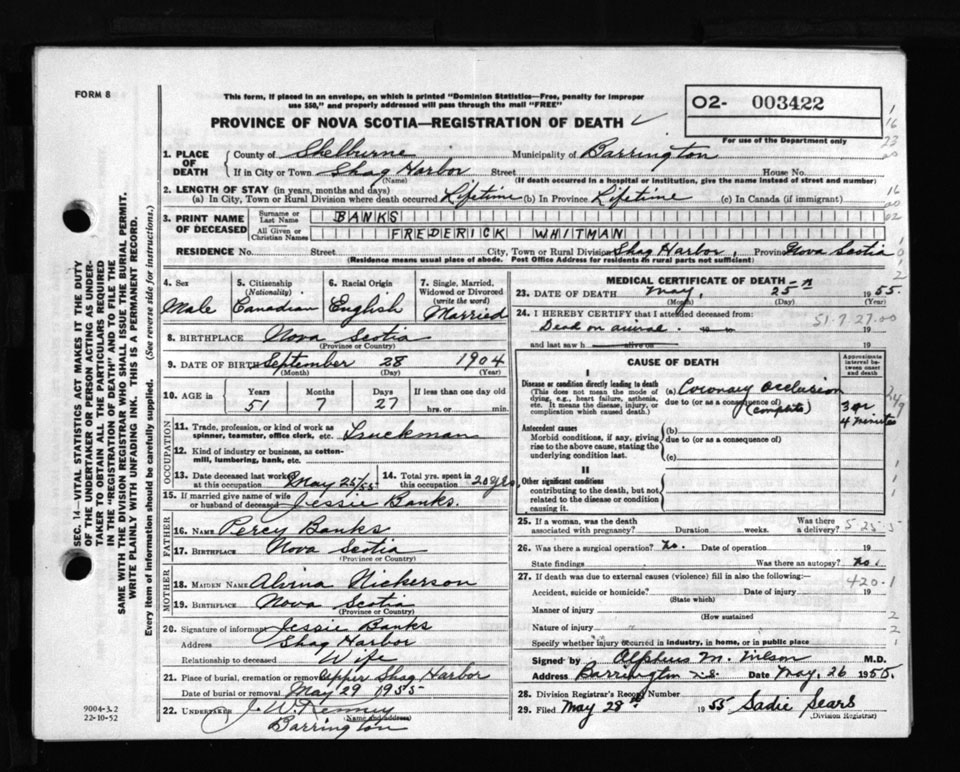 FORM 8
This form, if placed in an envelope, on which is printed "Dominion Statistics—Free, penalty for improper
use $50," and properly addressed will pass through the mail "FREE"
O2- 003422
For use of the Department only
PROVINCE OF NOVA SCOTIA—REGISTRATION OF DEATH
1. PLACE OF DEATH County of Shelburne Municipality of Barrington
If in City or Town Shag Harbor Street House No.
(Name) (If death occurred in a hospital or institution, give the name instead of street and number)
2. LENGTH OF STAY (in years, months and days)
(a) In City, Town or Rural Division where death occurred Lifetime (b) In Province Lifetime (c) In Canada (if immigrant)
3. PRINT NAME OF DECEASED Surname or Last Name BANKS
All Given or Christian Names FREDERICK WHITMAN
RESIDENCE No. Street City, Town or Rural Division Shag Harbor, Province Nova Scotia
(Residence means usual place of abode. Post Office Address for residents in rural parts not sufficient)
4. Sex Male
5. Citizenship (Nationality) Canadian
6. Racial Origin English
7. Single, Married, Widowed or Divorced (write the word) Married
8. BIRTHPLACE Nova Scotia
(Province or Country)
9. DATE OF BIRTH September 28 1904
(Month) (Day) (Year)
10. AGE in Years 51 Months 7 Days 27 If less than one day old hrs. or min.
OCCUPATION
11. Trade, profession, or kind of work as spinner, teamster, office clerk, etc. Truckman
12. Kind of industry or business, as cotton-mill, lumbering, bank, etc.
13. Date deceased last worked at this occupation May 25/55
14. Total yrs. spent in this occupation 20 yrs
15. If married give name of wife or husband of deceased Jessie Banks.
FATHER
16. NAME Percy Banks
17. BIRTHPLACE Nova Scotia
(Province or Country)
MOTHER
18. MAIDEN NAME Alvina Nickerson
19. BIRTHPLACE Nova Scotia
(Province or Country)
20. Signature of informant Jessie Banks
Address Shag Harbor
Relationship to deceased Wife
21. Place of burial, cremation or removal Upper Shag Harbor
Date of burial or removal May 29 1955
22. Undertaker J. W. Kenney
(Name and address)
Barrington
MEDICAL CERTIFICATE OF DEATH
23. DATE OF DEATH May, 25th 1955.
(Month) (Day) (Year)
24. I HEREBY CERTIFY that I attended deceased from:
51.7.27.00
Dead on arrival. to 19
and last saw h alive on 19
CAUSE OF DEATH
Approximate interval between onset and death
I
Disease or condition directly leading to death
(This does not mean the mode of dying, e.g., heart failure, asthenia, etc. It means the disease, injury, or complication which caused death.)
(a) Coronary occlusion
due to (or as a consequence of)
(complete)
3 or 4 minutes
Antecedent causes
Morbid conditions, if any, giving rise to the above cause, stating the underlying condition last.
(b)
due to (or as a consequence of)
(c)
II
Other significant conditions
contributing to the death, but not related to the disease or condition causing it.
25. If a woman, was the death associated with pregnancy? Duration weeks. Was there a delivery?
26. Was there a surgical operation? no. Date of operation 19
State findings Was there an autopsy? no.
27. If death was due to external causes (violence) fill in also the following:—
420.1
Accident, suicide or homicide? Date of injury 19
(State which)
Manner of injury
(How sustained)
Nature of injury
Specify whether injury occurred in industry, in home, or in public place
Signed by M. Wilson M.D.
Address Barrington N.S. Date May, 26 1955.
28. Division Registrar's Record Number
29. Filed May 28th 1955 Sadie Sears
(Division Registrar)
SEC. 14—VITAL STATISTICS ACT MAKES IT THE DUTY
OF THE UNDERTAKER OR PERSON ACTING AS UNDER-
TAKER TO OBTAIN ALL THE PARTICULARS REQUIRED
IN THE "REGISTRATION OF DEATH" AND TO FILE THE
SAME WITH THE DIVISION REGISTRAR WHO SHALL ISSUE THE BURIAL PERMIT.
WRITE PLAINLY WITH UNFADING INK. THIS IS A PERMANENT RECORD.
Every item of information should be carefully supplied. (See reverse side for instructions.)
9004-3.2
22-10-52